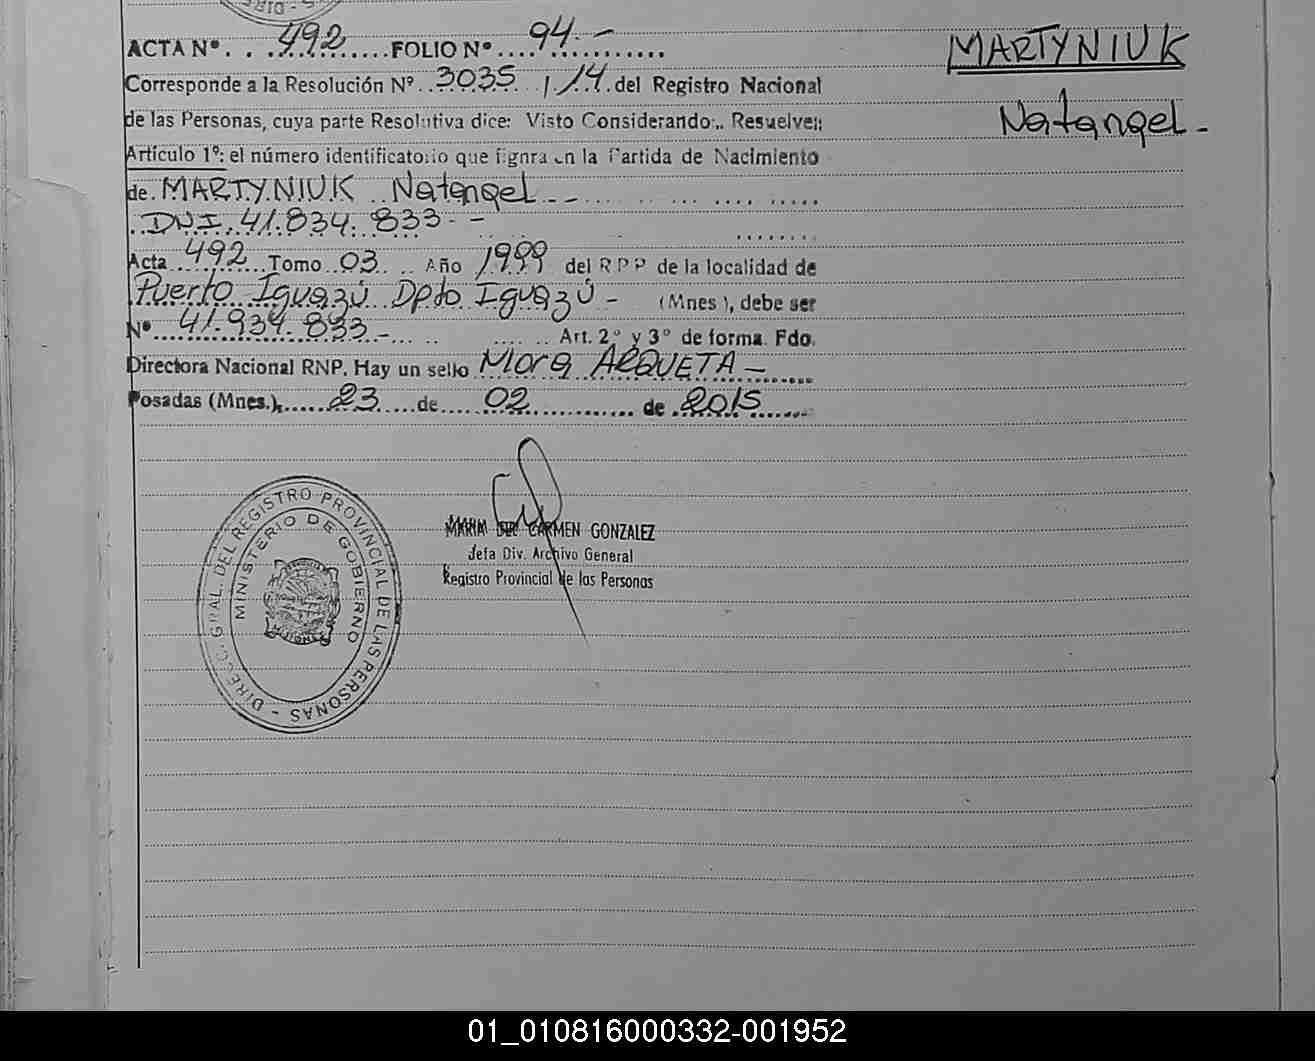 ACTA Nº. . . 492 ..... FOLIO Nº .... 94.-
MARTYNIUK
Natanael.-
Corresponde a la Resolución Nº ..3035 / 14. del Registro Nacional
de las Personas, cuya parte Resolutiva dice: Visto Considerando:,. Resuelve;:
Artículo 1º: el número identificatorio que figura en la Partida de Nacimiento
de. MARTYNIUK Natanael.--
DNI. 41.834.833.--
Acta 492 Tomo 03 Año 1999 del RPP de la localidad de
Puerto Iguazú Dpto Iguazú - (Mnes), debe ser
Nº 41.934.833.- Art. 2º y 3º de forma. Fdo.
Directora Nacional RNP. Hay un sello Mora ARQUETA -
Posadas (Mnes.), 23 de 02 de 2015
MARIA DEL CARMEN GONZALEZ
Jefa Div. Archivo General
Registro Provincial de las Personas
DIRECC. GRAL. DEL REGISTRO PROVINCIAL DE LAS PERSONAS -
MINISTERIO DE GOBIERNO
MISIONES
01_010816000332-001952